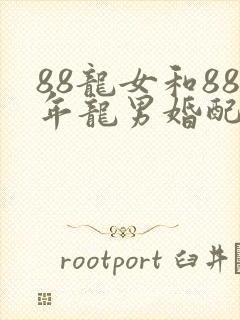 88龍女和88
年龍男婚配
rootport 臼井